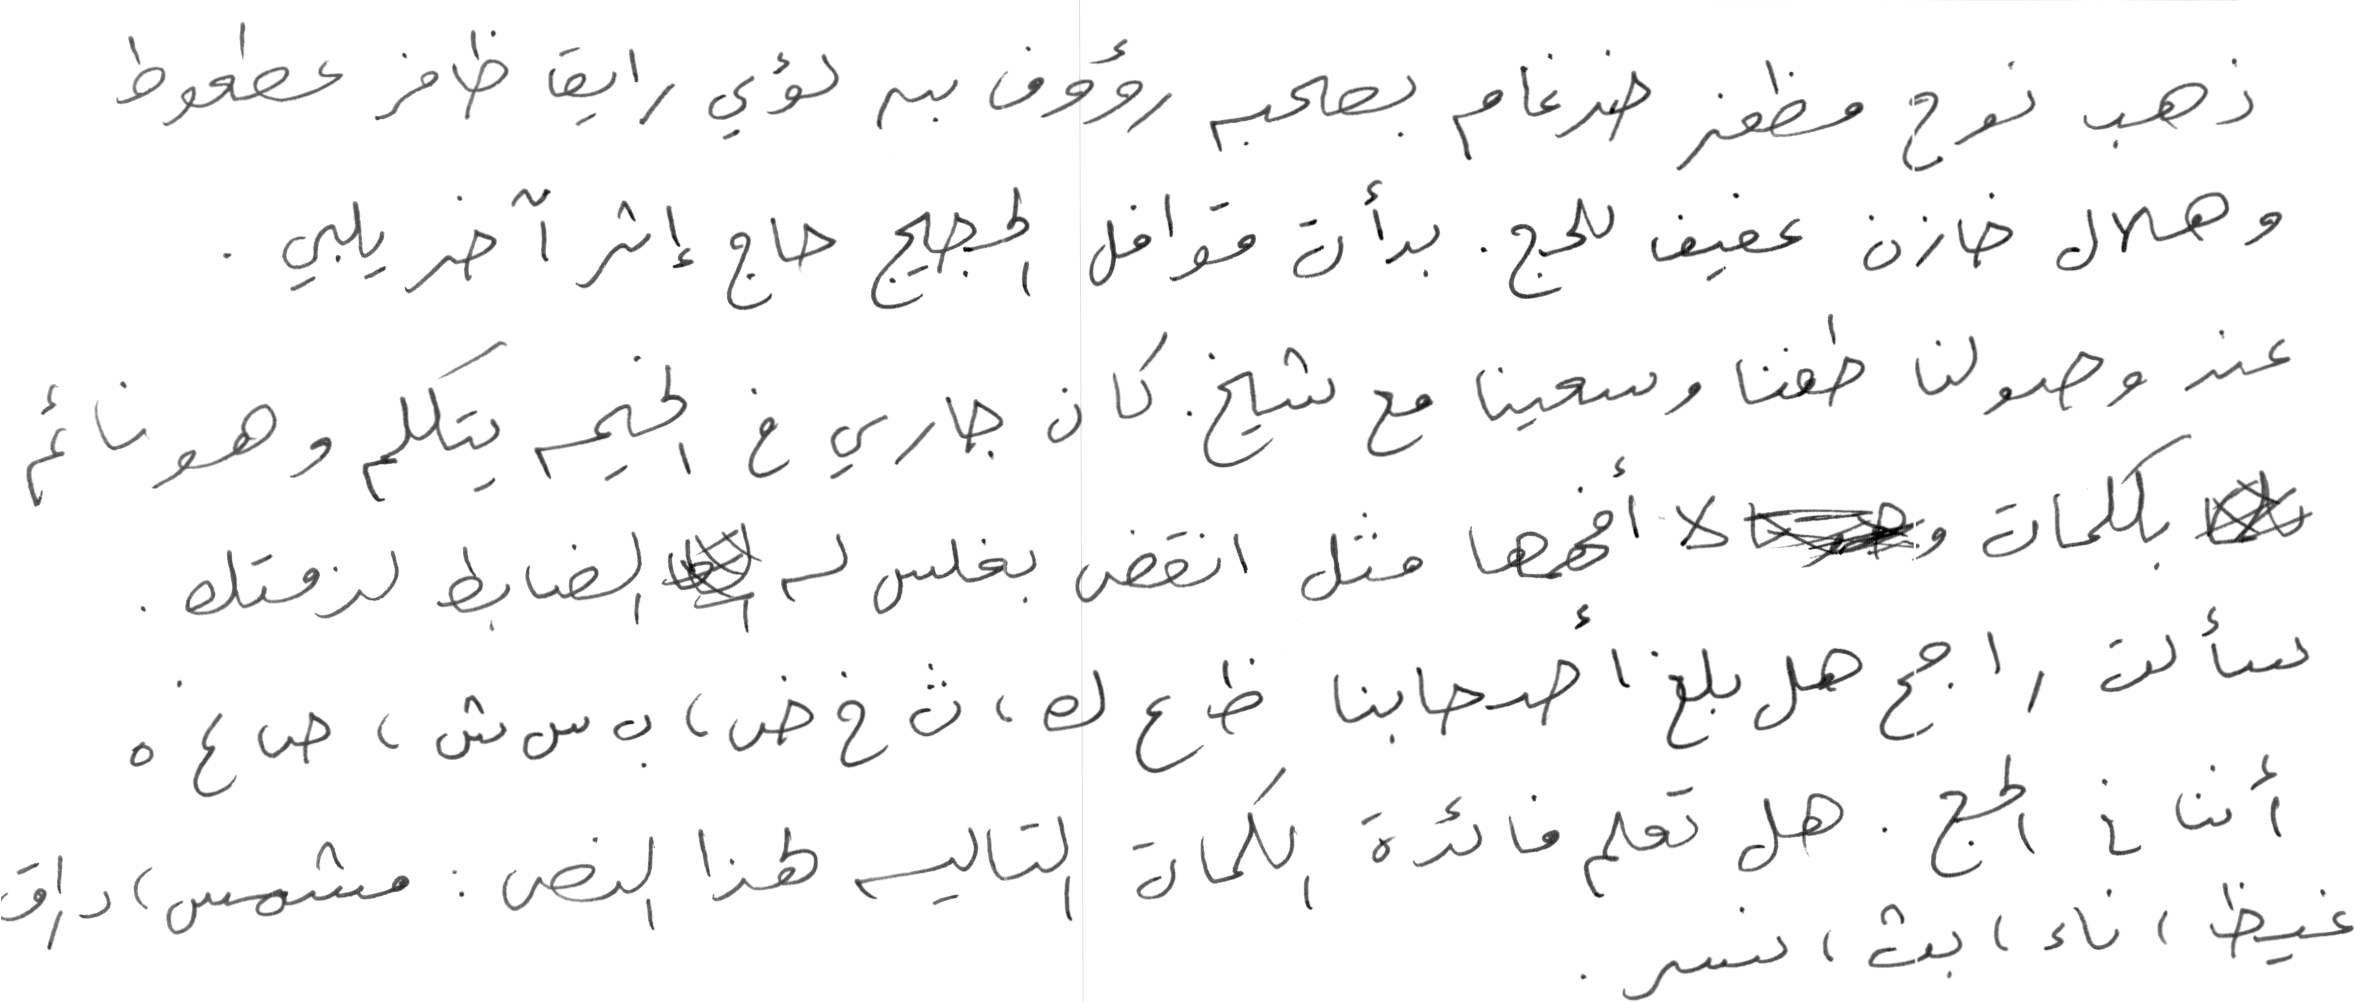 ذهب نوح مظفر ضرغام بصحبه رؤوف بيه لؤي رايقا ظافر عطعوط
وهلال خازن عفيف للحج. بدأت قوافل الحجيج حاج إثر آخر يلبي.
عند وصولنا طفنا وسعينا مع شيخ. كان جاري في الخيمه يتكلم وهو نائم
بكلمات لا أفهمها مثل انقض بغلس له الضابط لزمتك.
سألت راجح هل بلغ أصحابنا ظ ع ك، ث خ ض، ب س ش، ص غ ه
أننا في الحج. هل تعلم فائدة الكلمات التاليه لهذا النص: مشمس، دراق
غيظ، ناء، بث، نسر.